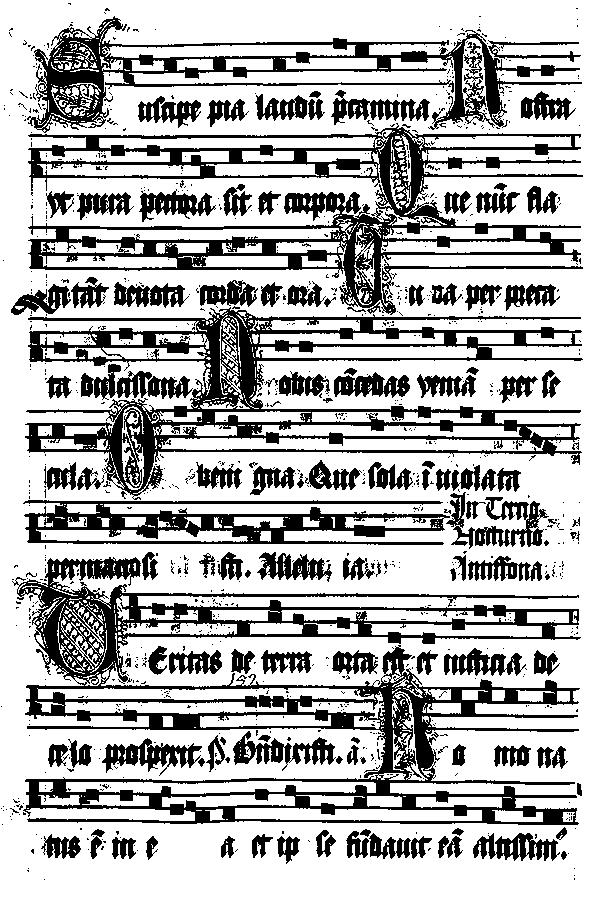 Suscipe pia laudū p̄camina. Nostra
vt pura pectora sīt et corpora. Que nūc fla
gitāt deuota corda et ora. Tu da per preca
ta dulcissona. Nobis cōcedas veniā per se
cula. O benigna. Que sola īuiolata
permansisti. Alleluia.
In Tertio
Nocturno.
Antiffona.
VEritas de terra orta est et iusticia de
celo prosperit. Ps. Bn̄dixisti. ā. No mo na
tus ē in e a et ip se fūdauit eā altissim⁹.